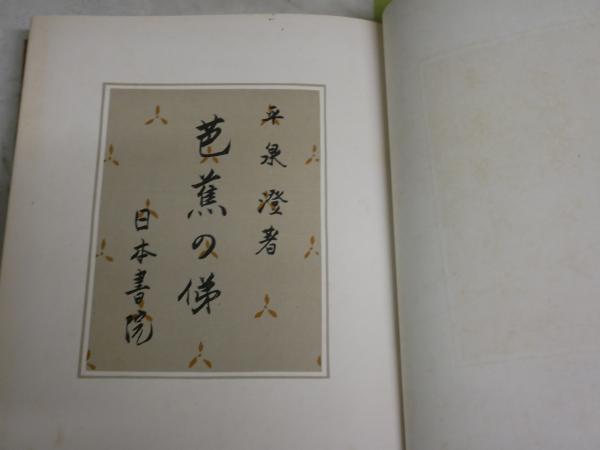 平泉澄著
芭蕉の俤
日本書院